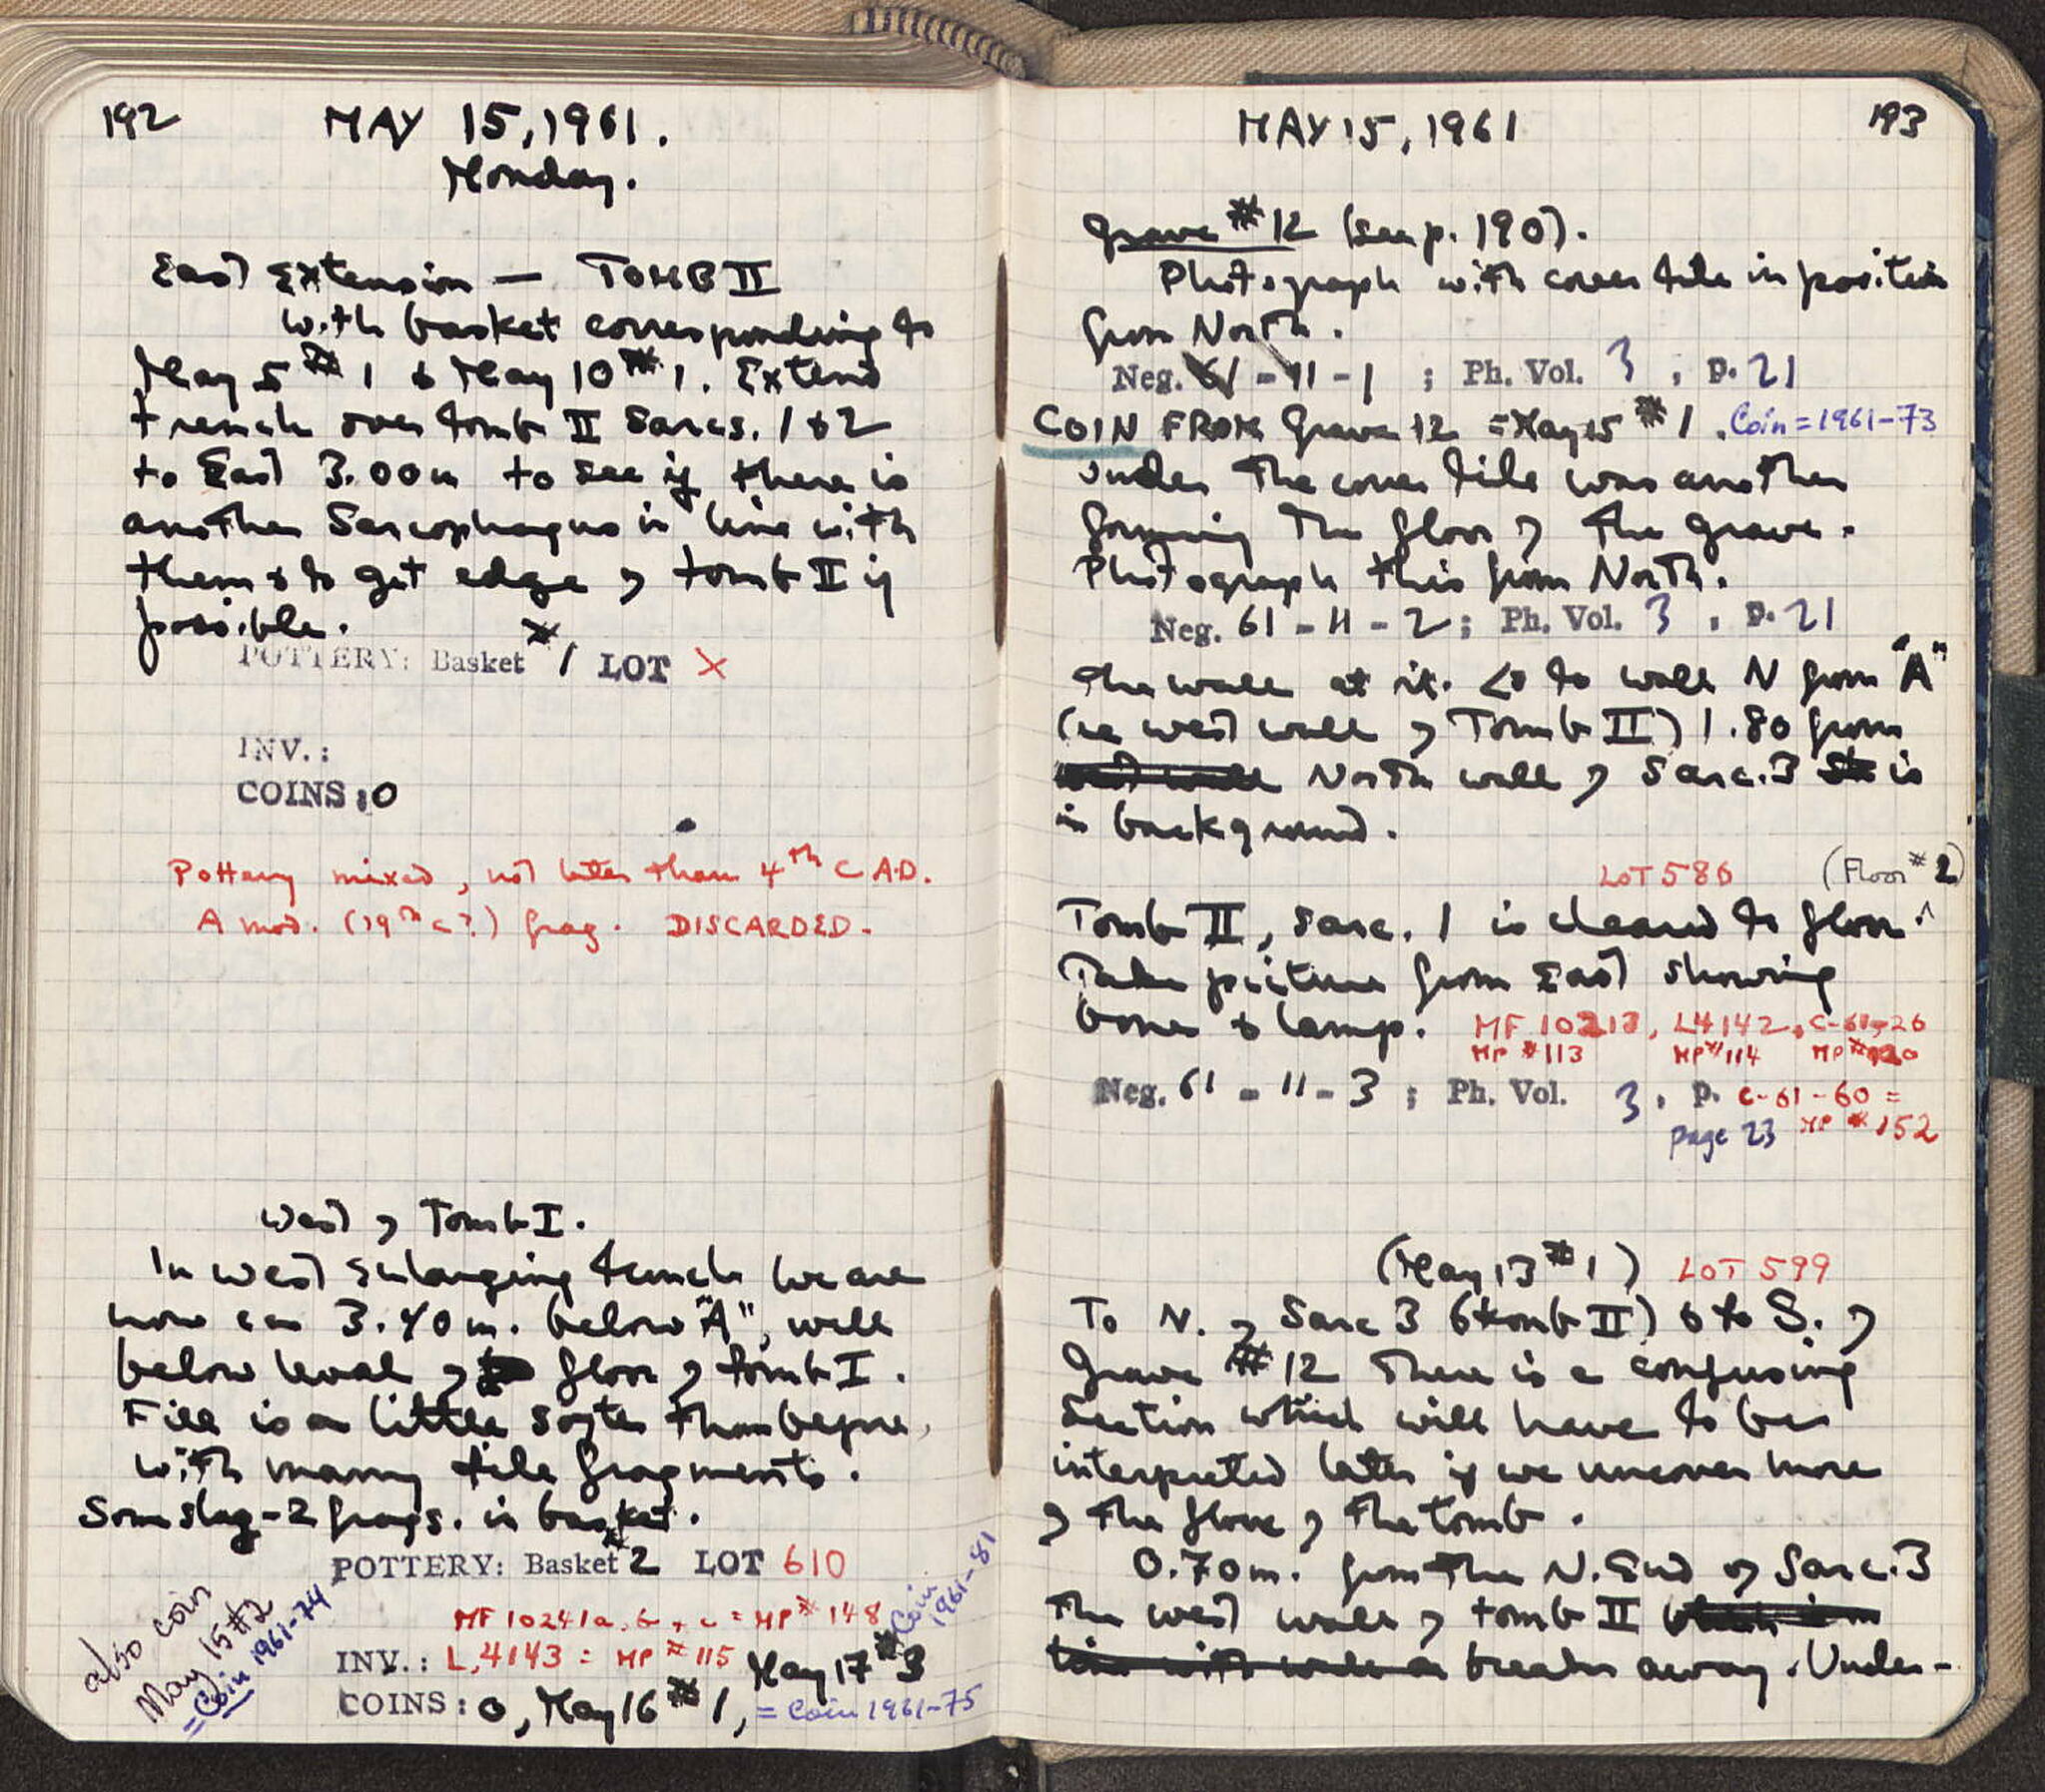 192
MAY 15, 1961.
Monday.
East Extension — TOMB II
with basket corresponding to
May 5 #1 & May 10 #1. Extend
trench over tomb II Sarcs. 1 & 2
to East 3.00m to see if there is
another Sarcophagus in line with
them & to get edge of tomb II if
possible.
POTTERY: Basket #1 LOT X
INV.:
COINS: 0
Pottery mixed, not later than 4th C A.D.
A mod. (19th c?) frag. DISCARDED.
West of Tomb I.
In west enlarging trench we are
now ca 3.40 m. below "A", well
below level of floor of tomb I.
Fill is a little softer than before,
with many tile fragments.
Some slag - 2 frags. in basket.
POTTERY: Basket #2 LOT 610
MF 10241a, b, c = MP #148
INV.: L.4143 = MP #115
COINS: 0, May 16 #1, May 17 #3
= Coin 1961-75
Coin
1961-81
also coin
May 15 #2
= Coin 1961-74
193
MAY 15, 1961
Grave #12 (see p. 190).
Photograph with cover tile in position
from North.
Neg. 61 - 11 - 1 ; Ph. Vol. 3 , p. 21
COIN FROM Grave 12 = May 15 #1. Coin = 1961-73
Under the cover tile was another
forming the floor of the grave.
Photograph this from North.
Neg. 61 - 11 - 2 ; Ph. Vol. 3 , p. 21
The wall at rt. <s to wall N from "A"
(ie west wall of Tomb II) 1.80 from
North wall of Sarc. 3 is
in background.
LOT 586 (Floor #2)
Tomb II, Sarc. 1 is cleared to floor ^
Take picture from East showing
bones & lamp. MF 10213, L4142, C-61-26
MP #113 MP #114 MP #120
Neg. 61 - 11 - 3 ; Ph. Vol. 3 , p. C-61-60 =
page 23 MP #152
(May 13 #1) LOT 599
To N. of Sarc 3 (tomb II) & to S. of
Grave #12 there is a confusing
section which will have to be
interpreted later if we uncover more
of the floor of the tomb.
0.70m. from the N. End of Sarc. 3
the west wall of tomb II
breaks away. Under-